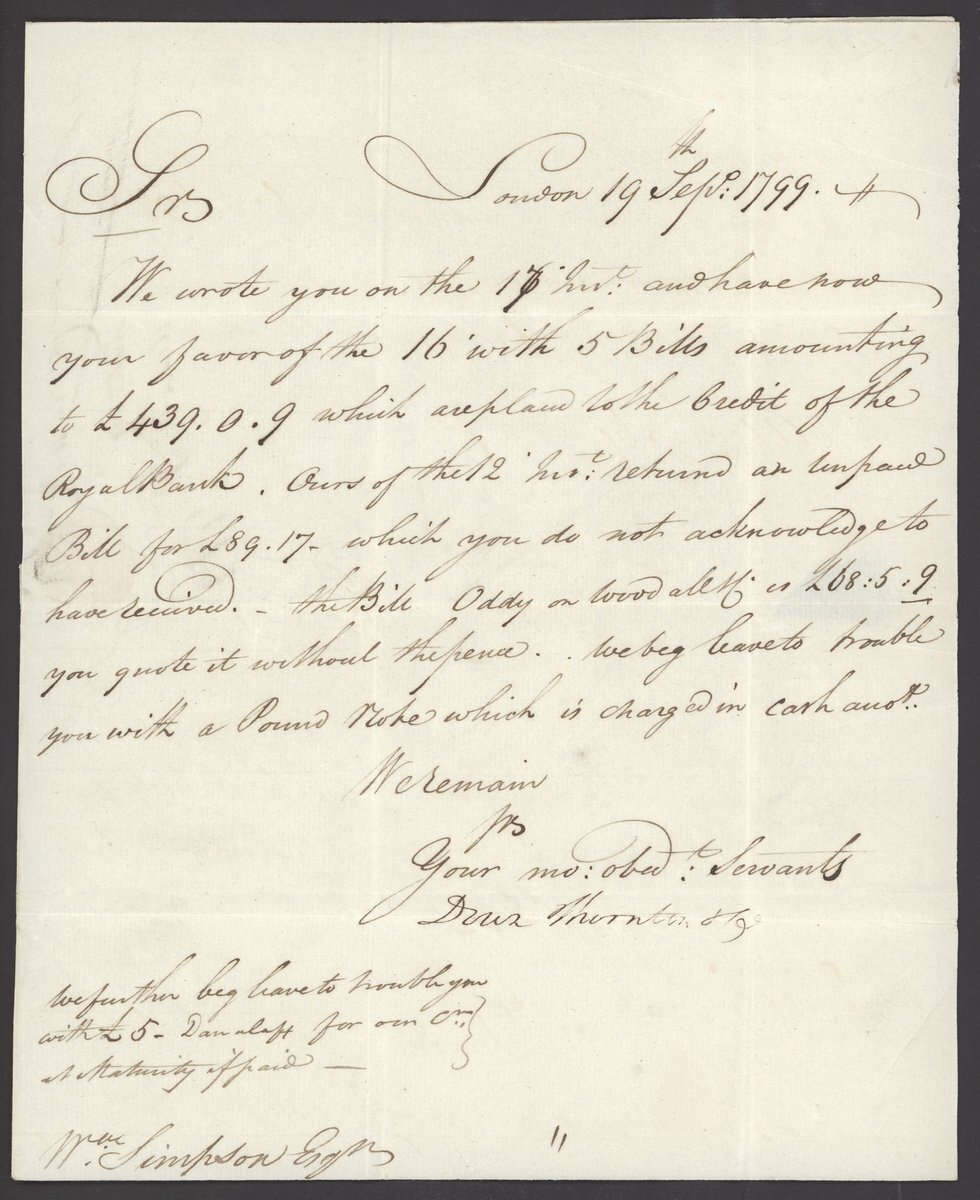 Sir London 19th Sepr: 1799.
We wrote you on the 17 Inst: and have now
your favor of the 16 with 5 Bills amounting
to £439.0.9 which are placed to the Credit of the
Royal Bank. Ours of the 12 Inst: returnd an unpaid
Bill for £89.17- which you do not acknowledge to
have received. - the Bill Oddy on Woodall &c is £68:5:9
you quote it without the pence. . we beg leave to trouble
you with a Pound Note which is charged in cash acco.t.
We remain
Sir
Your mo: obed.t: Servants
Down Thornton & Co
We further beg leave to trouble you
with £5- for our Cr:
at Maturity if paid -
Wm: Simpson Esqr